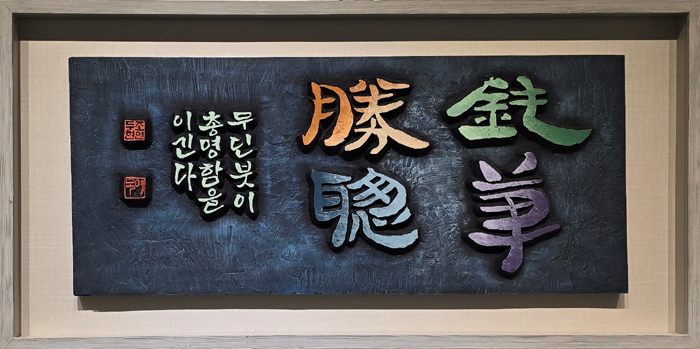 鈍筆
勝聰
무딘붓이
총명함을
이긴다